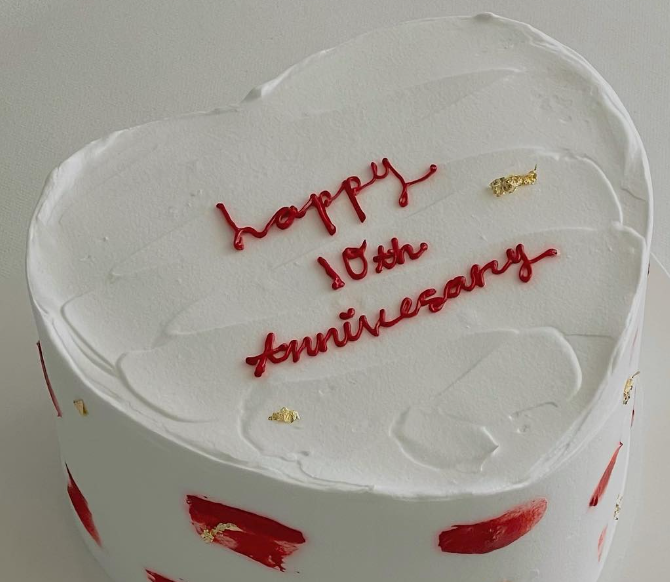 happy
10th
Annivesary